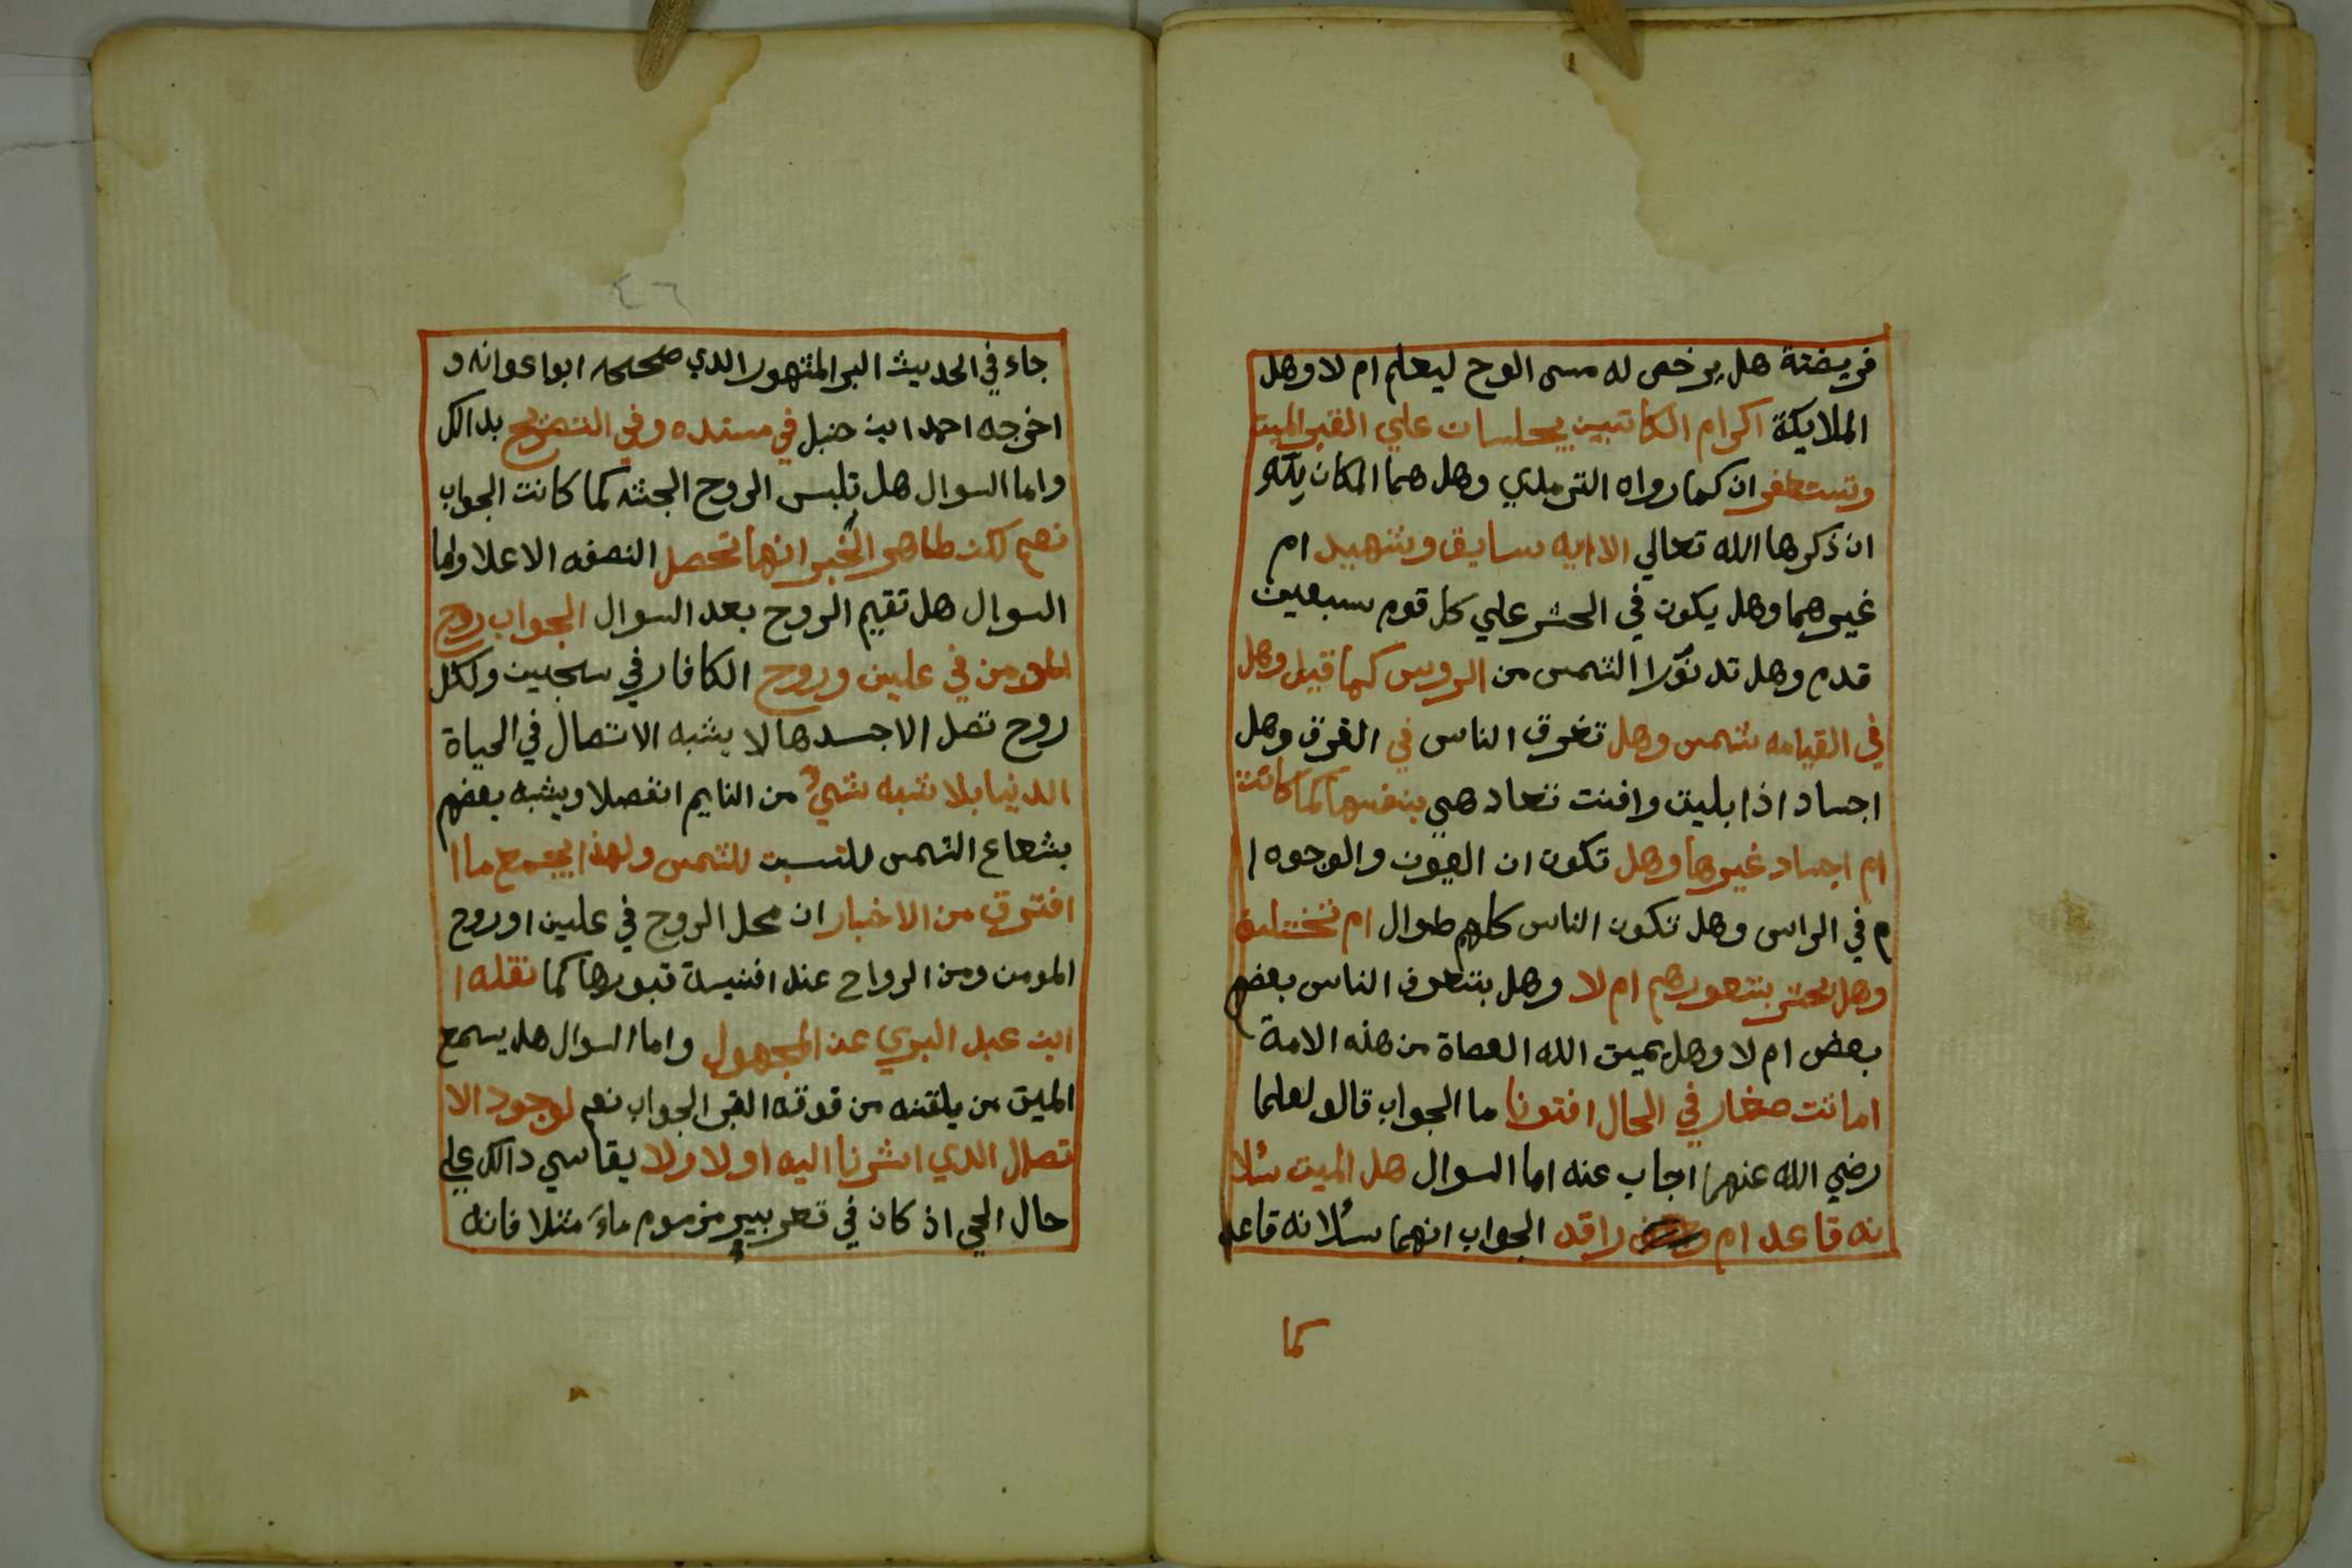 فريضتة هل يرخص له مسى الوح ليعلم ام لا وهل
الملايكة اكرام الكاتبين يجلسان علي القبر الميت
وتستغفران كما رواه الترمدي وهل هما المكان يكو
ان ذكرها الله تعالي الا ايه سايق وشهيد ام
غيرهما وهل يكون في الحشر علي كل قوم سبعين
قدم وهل تد نوا الشمس من الروس كما قيل وهل
في القيامه شمس وهل تغرق الناس في الغرق وهل
اجساد اذا بليت وافنت تعاد هي بنفسها كما كانت
ام اجساد غيرها وهل تكون ان العيون والوجوه ا
م في الراس وهل تكون الناس كلهم طوال ام تختلف
وهل تحشر بشعورهم ام لا وهل بتعرف الناس بعضم
بعض ام لا وهل يميت الله العصاة من هذه الامة
اماتت صغار في الحال افتونا ما الجواب قالو لعلما
رضي الله عنهم اجاب عنه اما السوال هل الميت سلا
نه قاعد ام راقد الجواب انهما سلا نه قاعد
كما
٤٦
جاء في الحديث البر المشهور الدي صححه ابوا عوانه و
اخرجه احمد ابن حنبل في مسنده وفي التصريح بدالك
واما السوال هل تلبس الروح الجثه كما كانت الجواب
نعم لكن ظاهر الخبر انها تحصل النصفه الاعلا واما
السوال هل تقيم الروح بعد السوال الجواب روح
المومن في علين وروح الكافار في سجين ولكل
روح تصل الاجسدها لا يشبه الاتصال في الحياة
الدنيا بلا شبه شيء من النايم انفصلا ويشبه بعضهم
بشعاع الشمس للنسبت للشمس ولهذا يجمع ما ا
افترق من الاخبار ان محل الروح في علين اوروح
المومن ومن الرواح عند افنيسة قبورها كما نقله ا
ابن عبد البري عن المجهول واما السوال هل يسمع
الميت من يلقنه من قوته القبر الجواب نعم لوجود الا
تصال الدي اشرنا اليه اولا ولا يقاسي دالك علي
حال الحي اذ كان في تعر بير مزموم ماء مثلا فانه